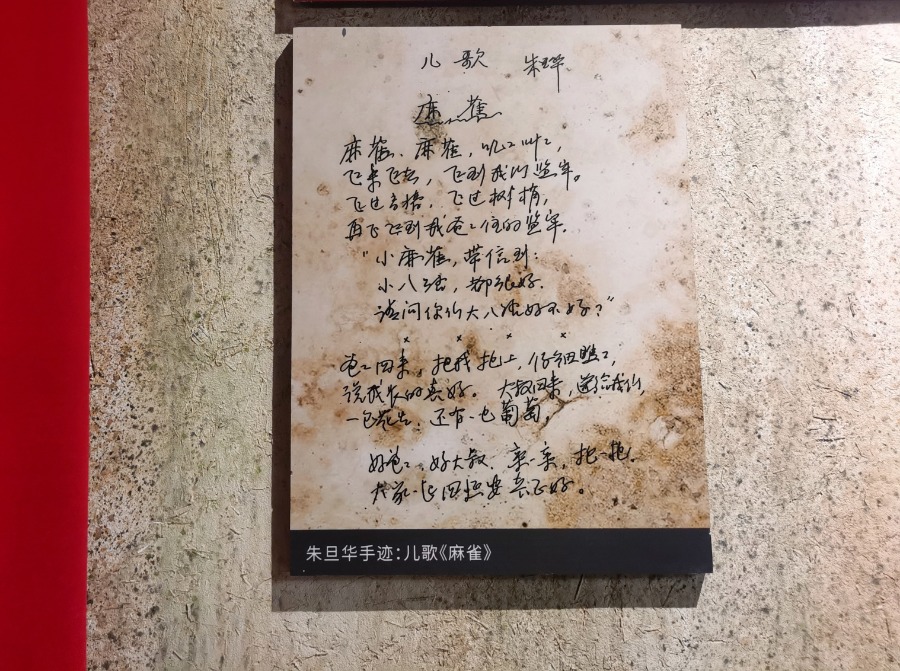 儿歌 朱旦华
麻雀
麻雀、麻雀,叽〻叫〻,
飞来飞去,飞到我们监牢。
飞过高墙,飞过树梢,
再飞飞到我爸〻住的监牢.
“小麻雀,带信到:
小八路,都很好.
请问你们大八路好不好?”
× × × ×
爸〻回来,把我抱上,仔细瞧〻,
说我长的真好。大叔回来,送给我们,
一包花生,还有一包葡萄,
好爸〻、好大叔、亲一亲,抱一抱.
大家一起回延安真正好。
朱旦华手迹:儿歌《麻雀》